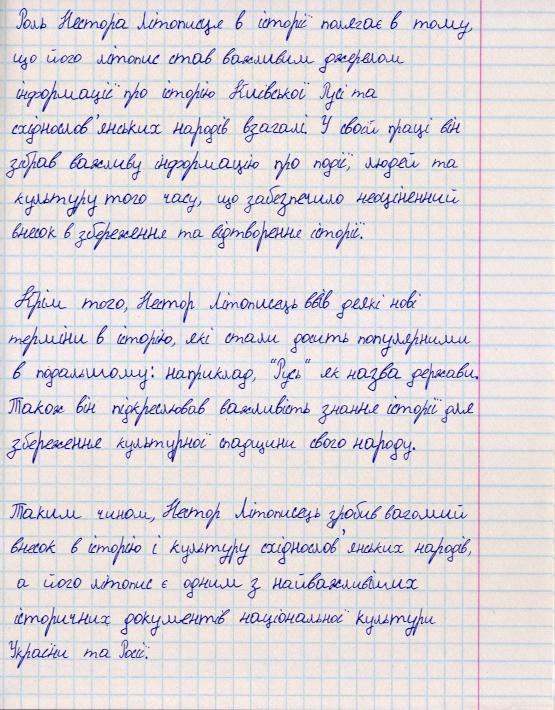 Роль Нестора Літописця в історії полягає в тому,
що його літопис став важливим джерелом
інформації про історію Київської Русі та
східнослов'янських народів взагалі. У своїй праці він
зібрав важливу інформацію про події, людей та
культуру того часу, що забезпечило неоціненний
внесок в збереження та відтворення історії.
Крім того, Нестор Літописець ввів деякі нові
терміни в історію, які стали досить популярними
в подальшому: наприклад, "Русь" як назва держави.
Також він підкреслював важливість знання історії для
збереження культурної спадщини свого народу.
Таким чином, Нестор Літописець зробив вагомий
внесок в історію і культуру східнослов'янських народів,
а його літопис є одним з найважливіших
історичних документів національної культури
України та Росії.